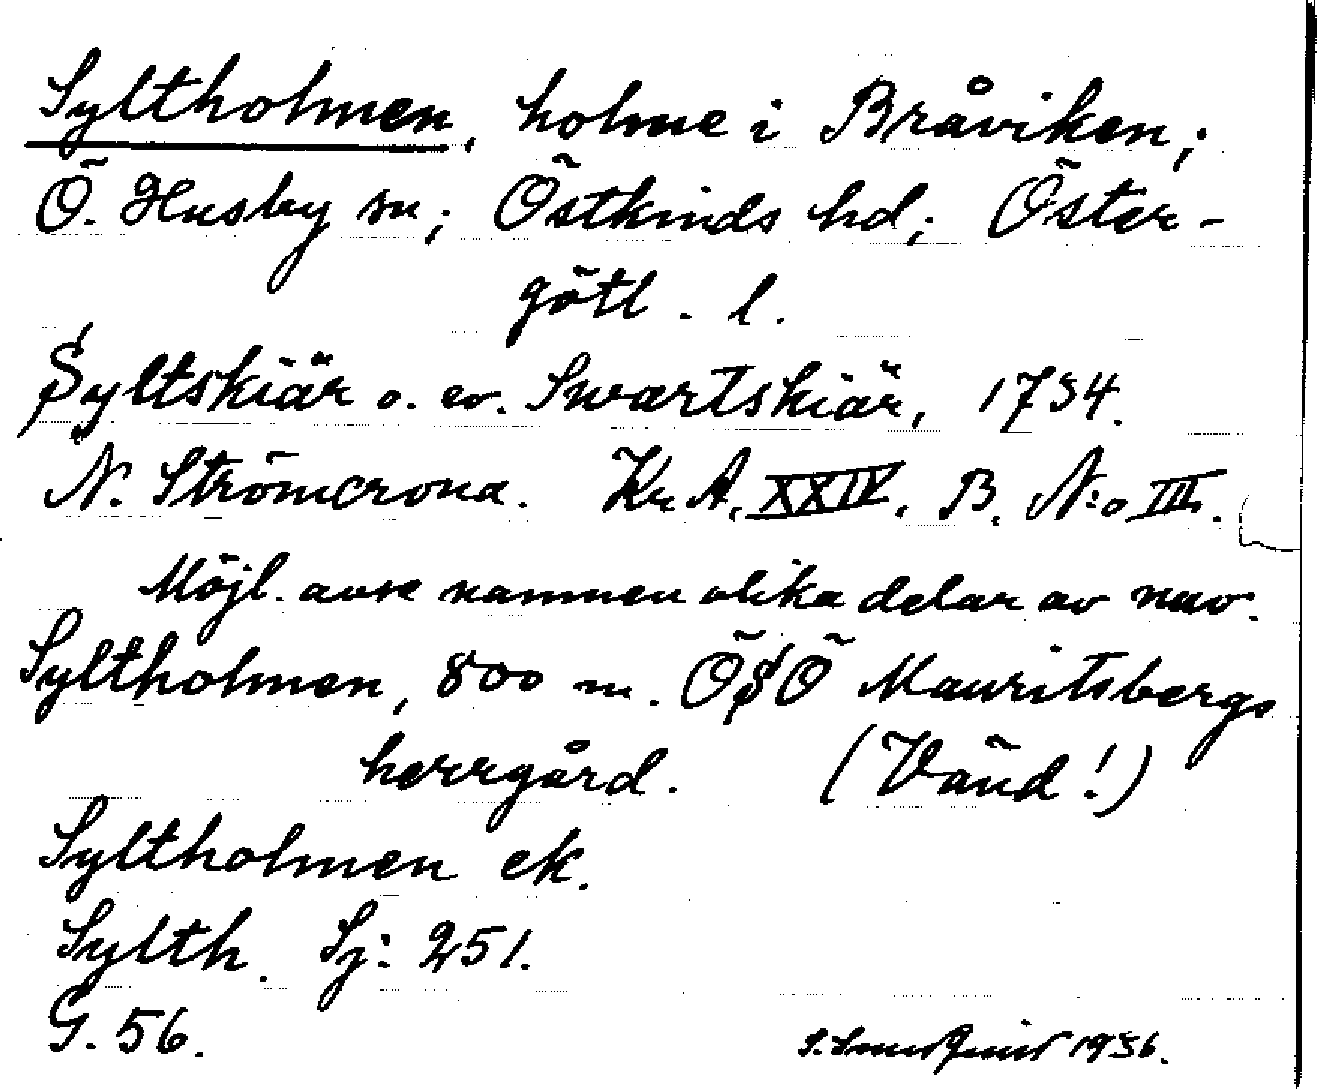 Syltholmen, holme i Bråviken;
Ö. Husby sn; Östkinds hd; Öster-
götl. l.
Syltskiär o. ev. Swartskiär, 1734.
N. Strömcrona. Kr. A. XXIV. B. N:o III.
Möjl. avse namnen olika delar av nuv.
Syltholmen, 800 m. ÖSÖ Mauritsbergs
herrgård. (Vänd!)
Syltholmen ek.
Sylth. Sj: 251.
G. 56.
1936.